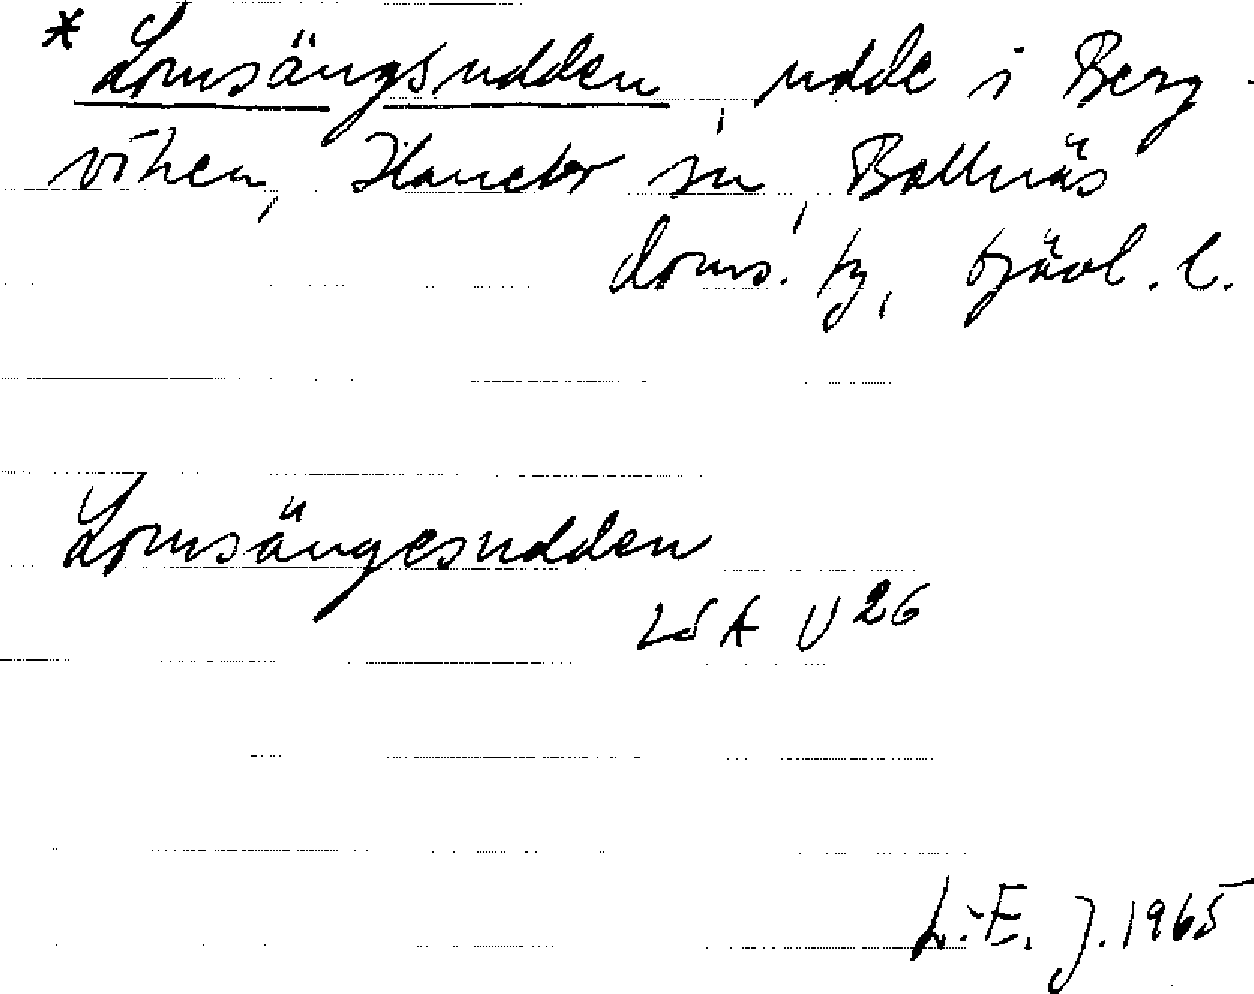 * Lomsängsudden, udde i Berg-
viken, Hanebo sn, Bollnäs
doms. tg, Gävl. l.
Lomsängesudden
LSA U 26
L.-E. J. 1965